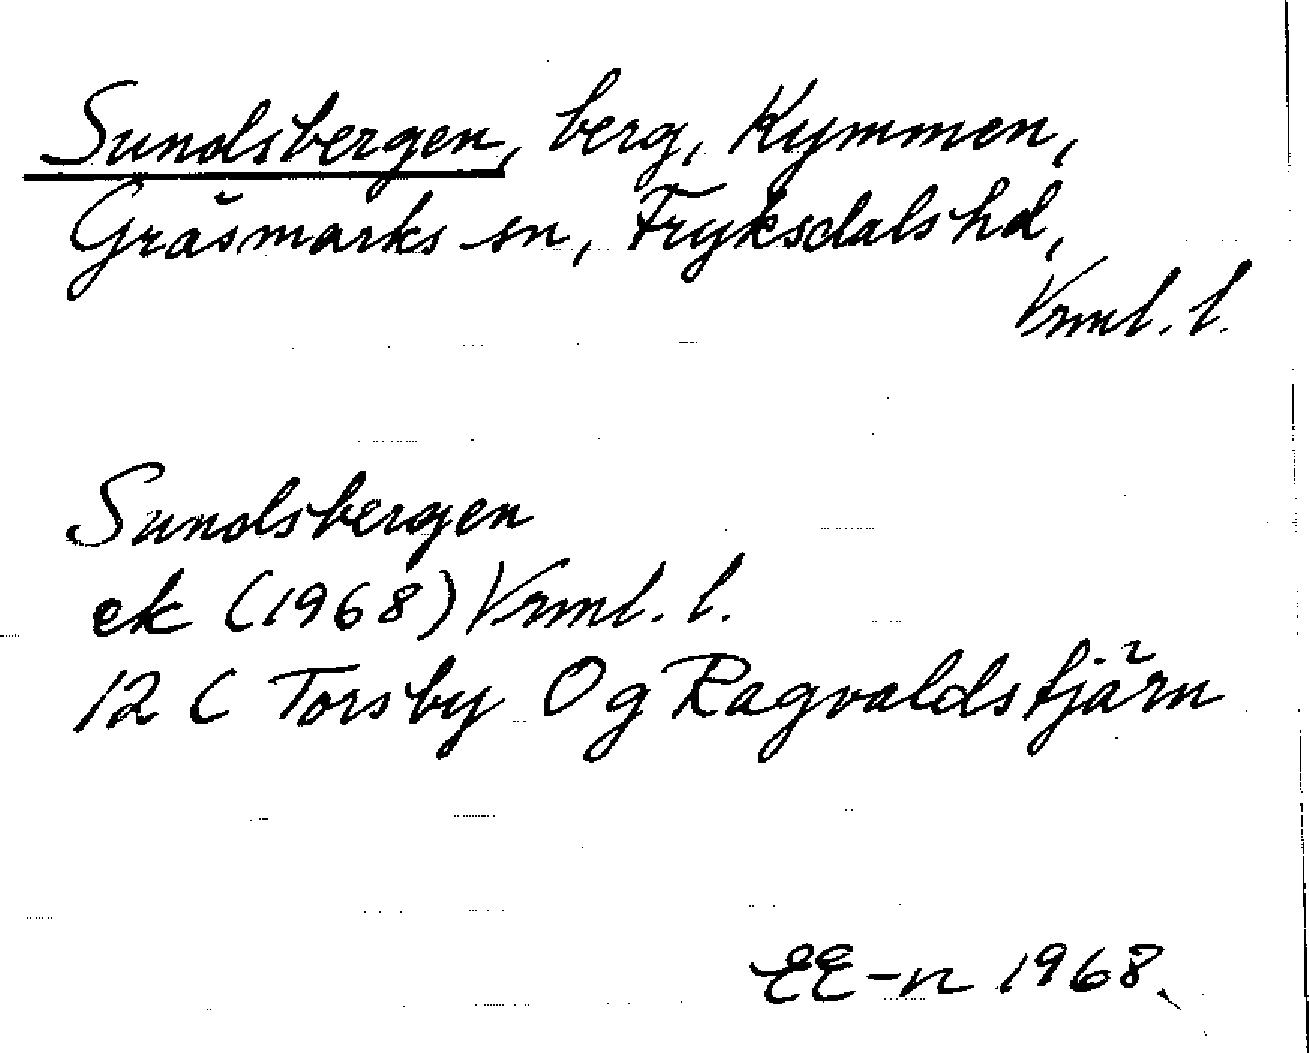 Sundsbergen, berg, Kymmen,
Gräsmarks sn, Fryksdals hd,
Vrml. l.
Sundsbergen
ek (1968) Vrml. l.
12 C Torsby Og Ragvaldstjärn
EE-n 1968